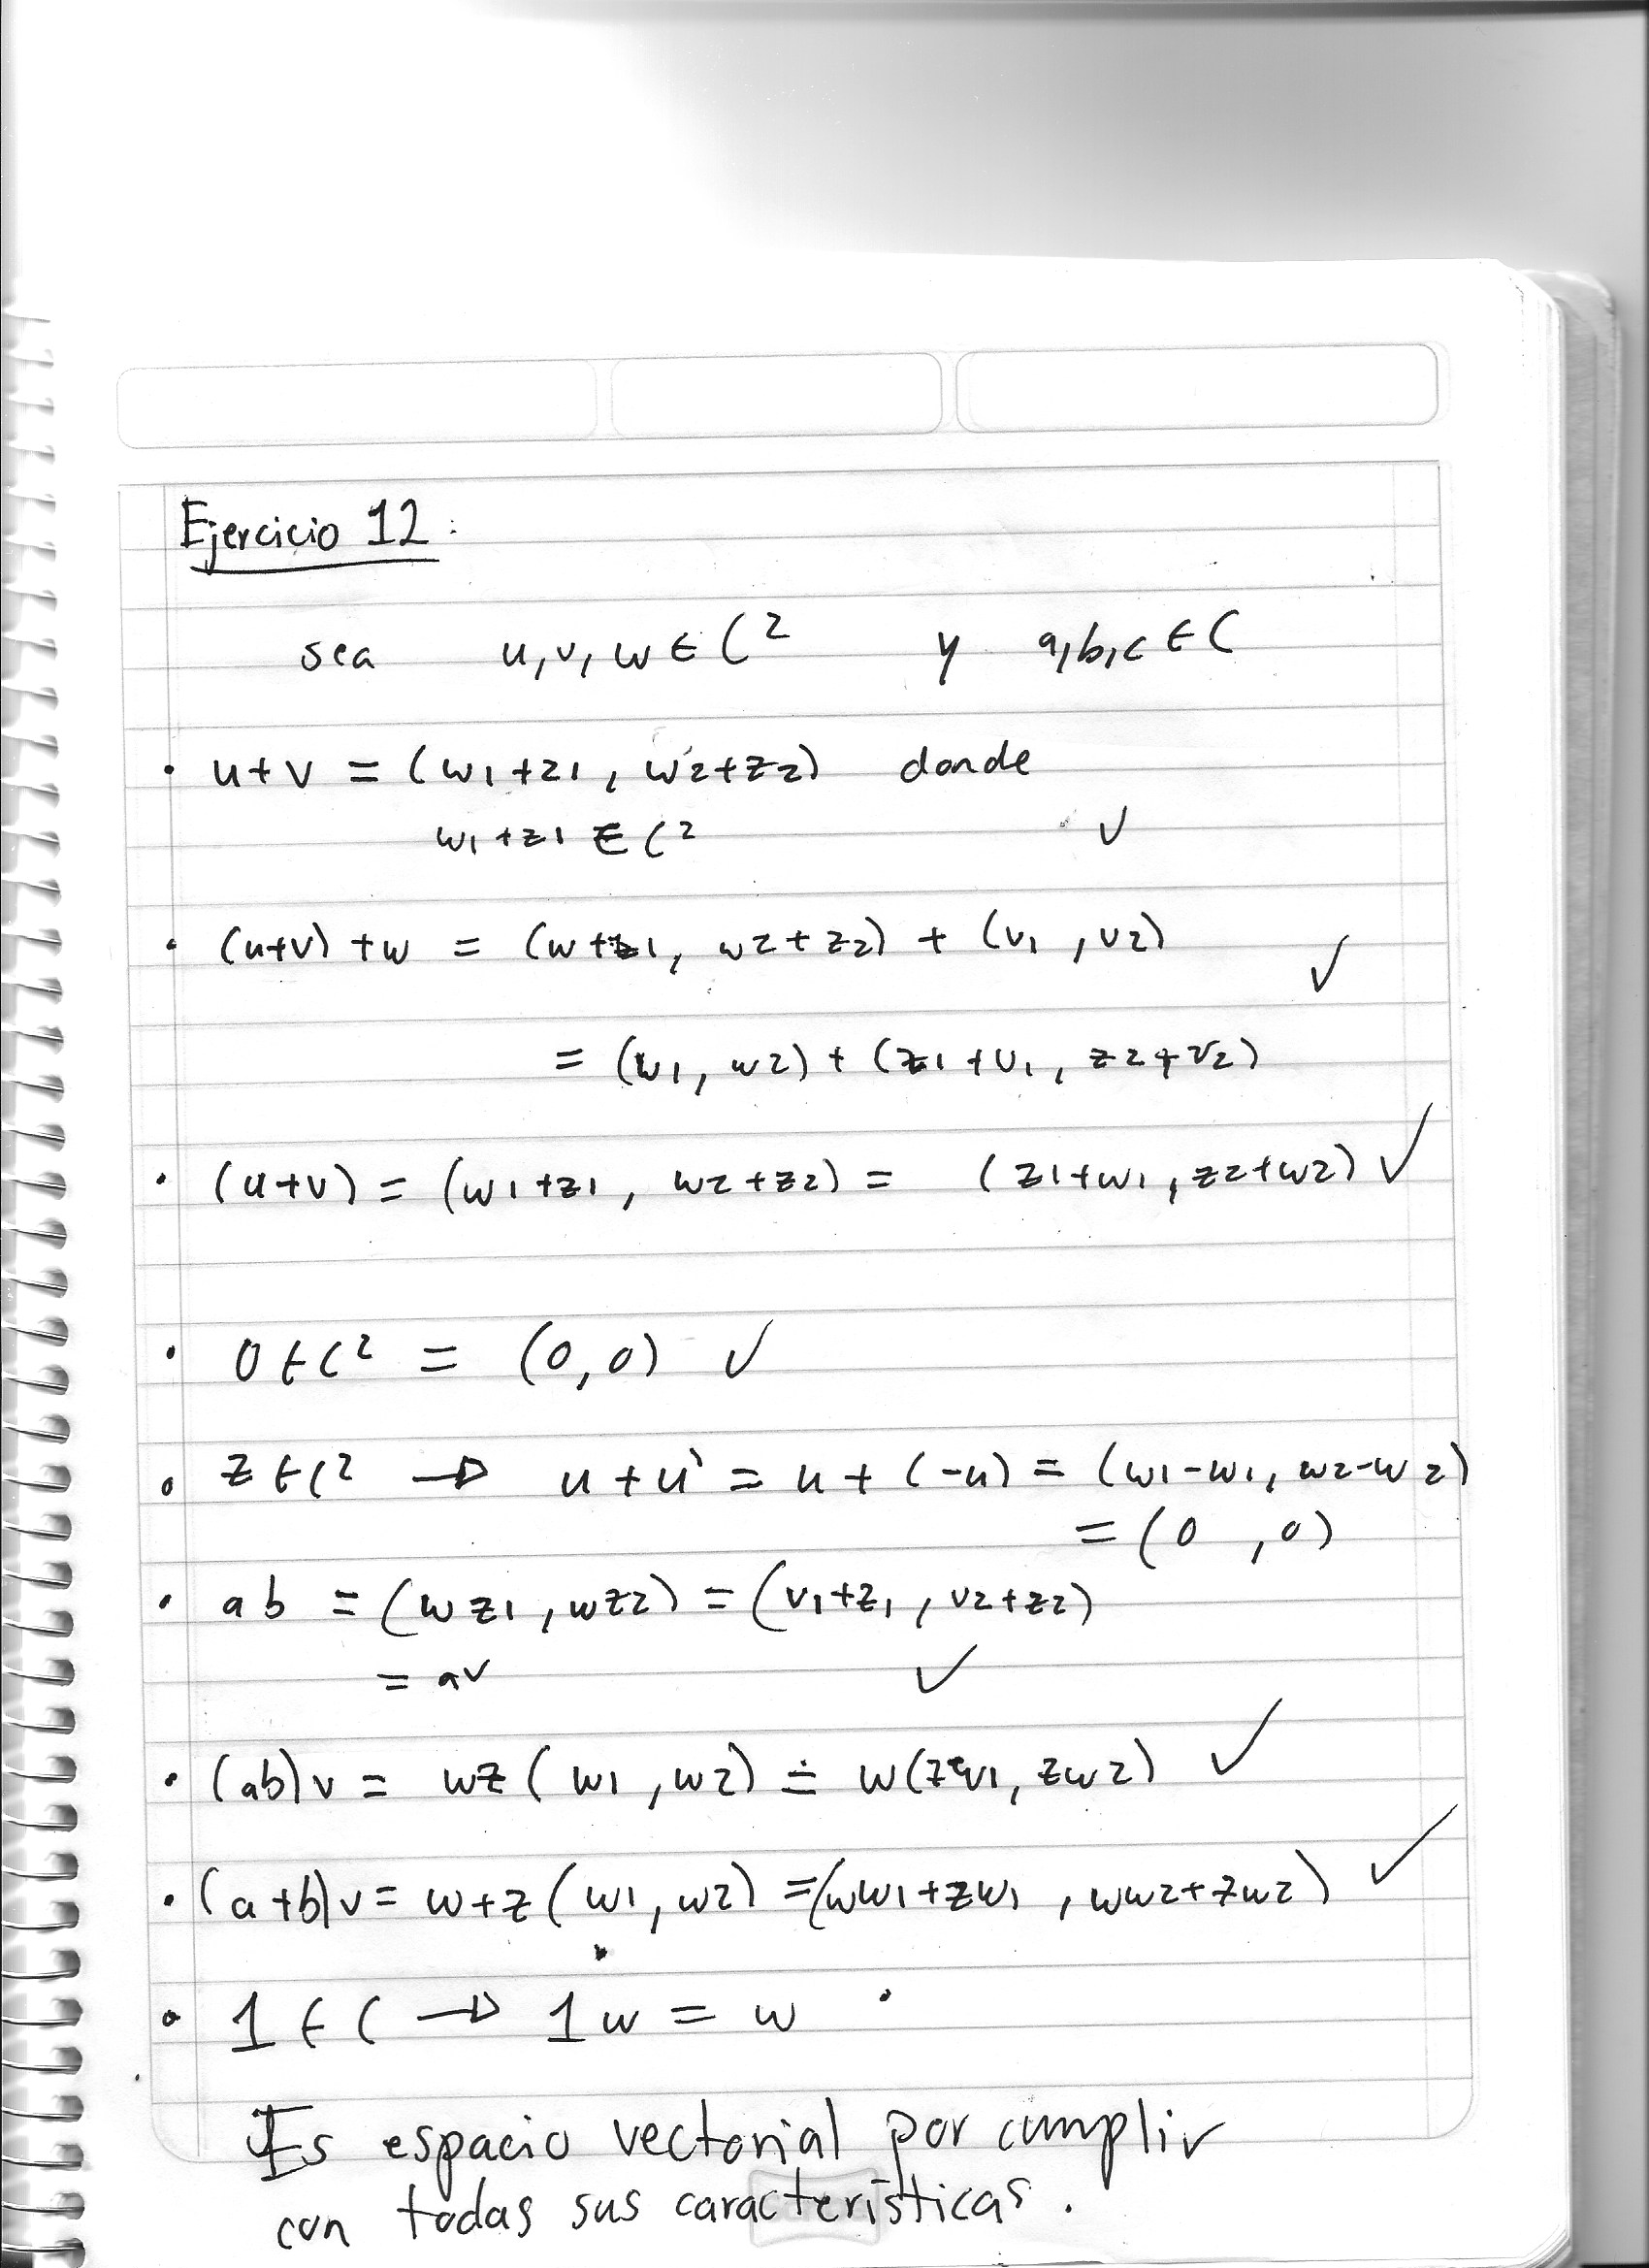 Ejercicio 12:
sea u,v,w ∈ C² y a,b,c ∈ C
• u+v = (w1+z1, w2+z2) donde
w1+z1 ∈ C² ✓
• (u+v)+w = (w+z1, w2+z2) + (v1, v2) ✓
= (w1, w2) + (z1+v1, z2+v2)
• (u+v) = (w1+z1, w2+z2) = (z1+w1, z2+w2) ✓
• 0 ∈ C² = (0,0) ✓
• z ∈ C² → u+u' = u+(-u) = (w1-w1, w2-w2)
= (0,0)
• ab = (wz1, wz2) = (v1+z1, v2+z2)
= av ✓
• (ab)v = wz(w1, w2) = w(zw1, zw2) ✓
• (a+b)v = w+z(w1, w2) = (ww1+zw1, ww2+zw2) ✓
• 1 ∈ C → 1w = w
Es espacio vectorial por cumplir
con todas sus características.